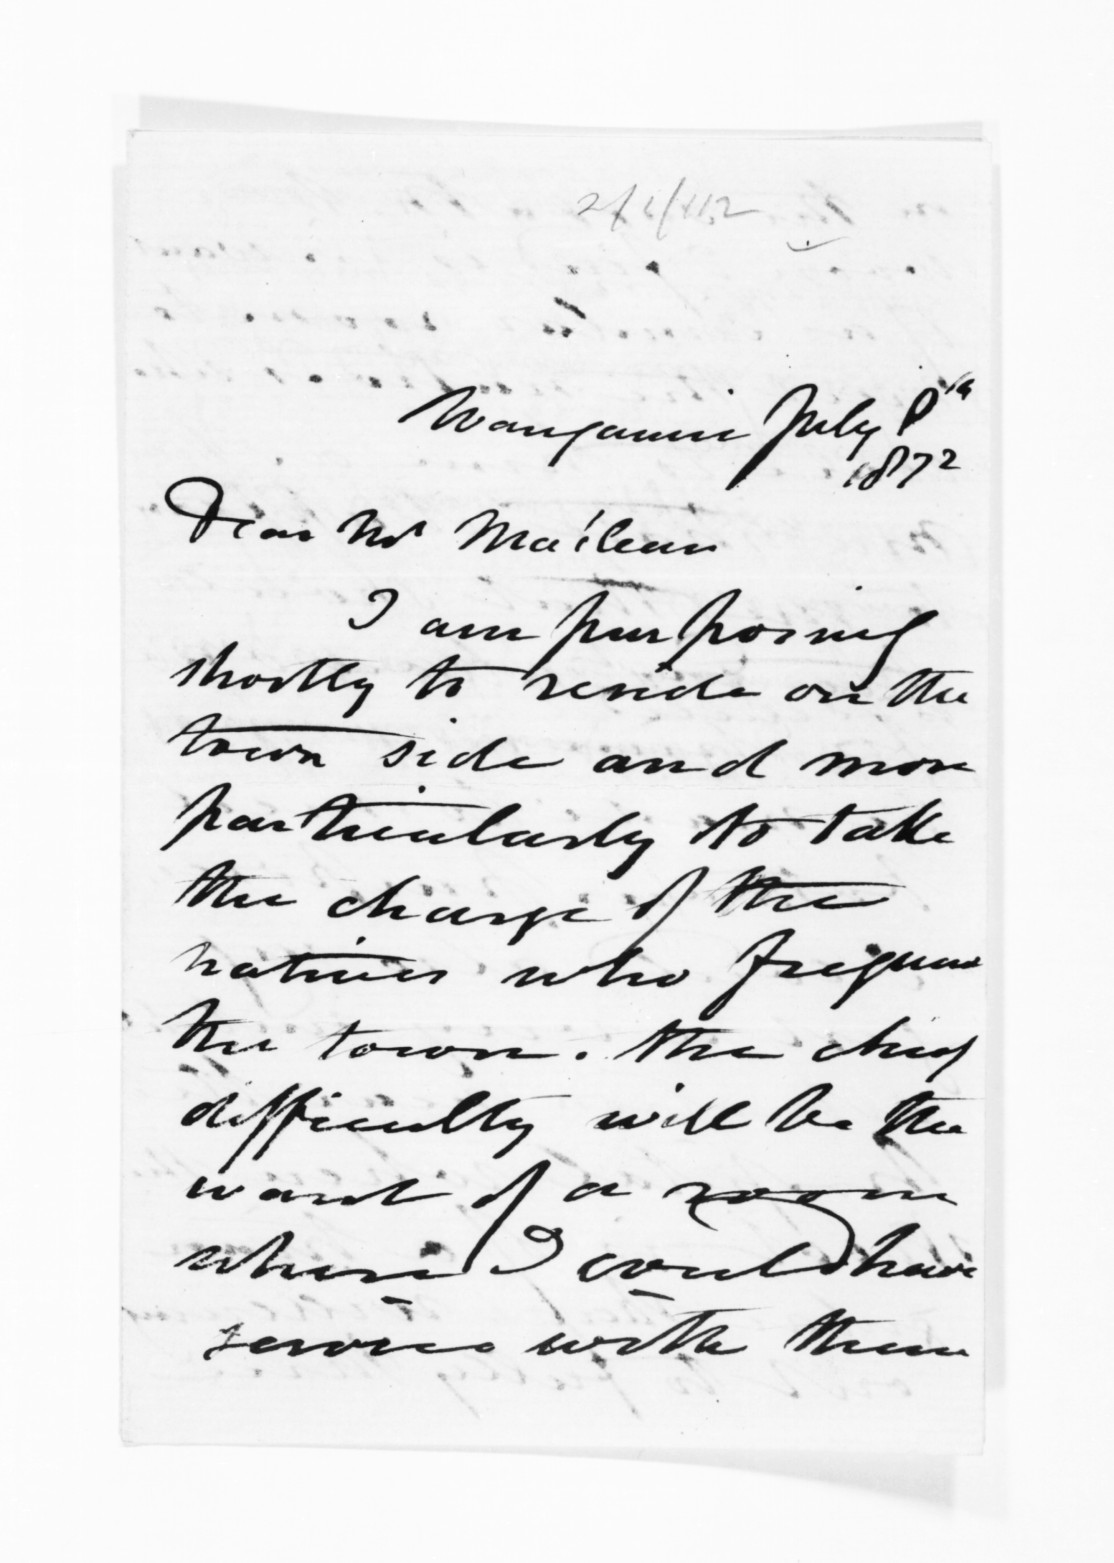 Wanganui July 8th
1872
Dear Mr McLean
I am purposing
shortly to reside on the
town side and more
particularly to take
the charge of the
natives who frequent
the town. the chief
difficulty will be the
want of a room
where I could have
service with them